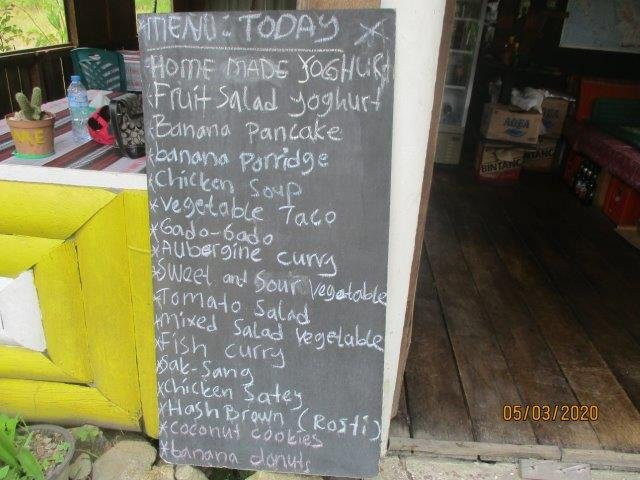 MENU: TODAY
HOME MADE YOGHURT
*Fruit Salad yoghurt
*Banana Pancake
*banana Porridge
*Chicken Soup
*Vegetable Taco
*Gado-Gado
*Aubergine curry
*Sweet and Sour Vegetable
*Tomato Salad
*Mixed Salad Vegetable
*Fish curry
*Sak-Sang
*Chicken Satey
*Hash Brown (Rosti)
*coconut cookies
*banana donuts
AQUA
BINTANG
05/03/2020